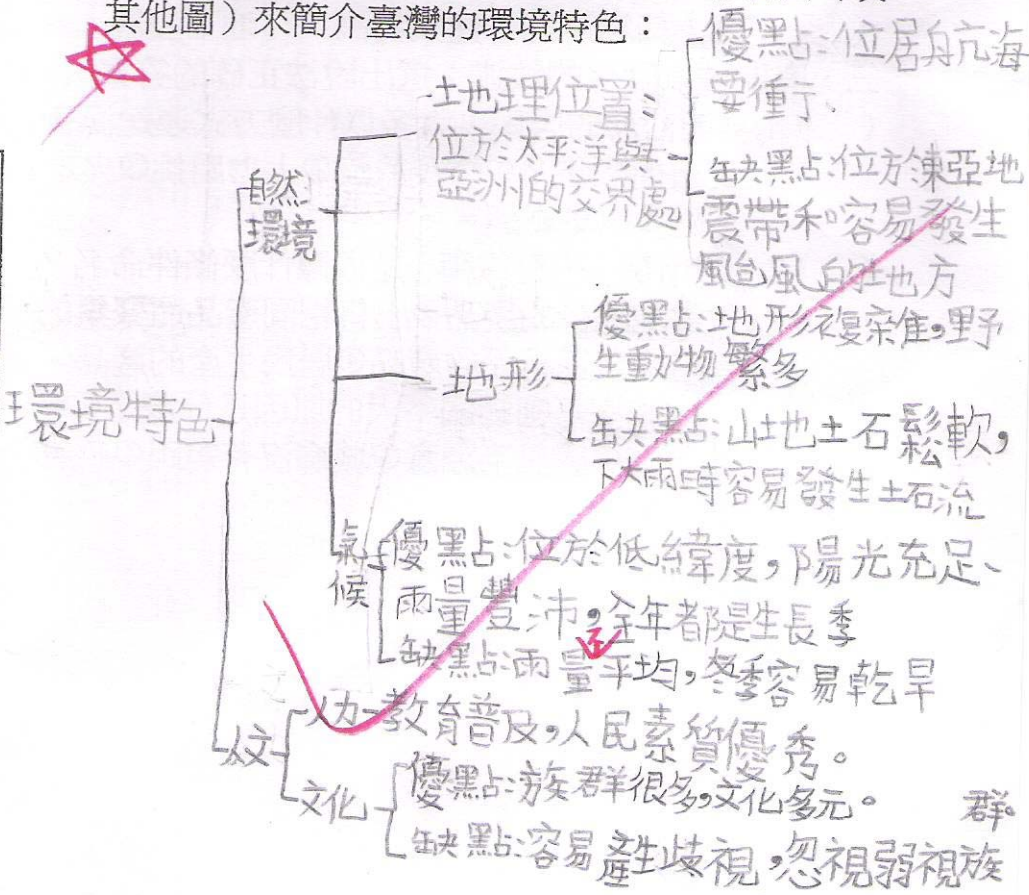 其他圖）來簡介臺灣的環境特色：
環境特色
自然環境
土地理位置：
位於太平洋與
亞洲的交界處
優點：位居航海
要衝。
缺點：位於東亞地
震帶和容易發生
颱風的地方
地形
優點：地形複雜，野
生動物繁多
缺點：山地土石鬆軟，
下大雨時容易發生土石流
氣候
優點：位於低緯度，陽光充足、
雨量豐沛，全年都是生長季
缺點：雨量不平均，冬季容易乾旱
人文
人力
教育普及，人民素質優秀。
文化
優點：族群很多，文化多元。
缺點：容易產生歧視，忽視弱視族
群。